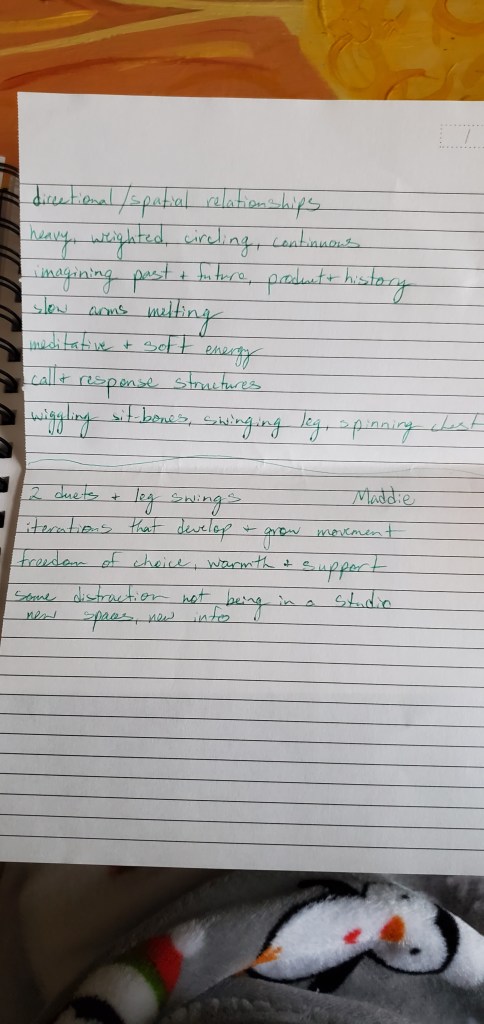 1
directional/spatial relationships
heavy, weighted, circling, continuous
imagining past + future, product + history
slow arms melting
meditative + soft energy
call + response structures
wiggling sit-bones, swinging leg, spinning chest
2 duets + leg swings Maddie
iterations that develop + grow movement
freedom of choice, warmth + support
some distraction not being in a studio
new spaces, new info